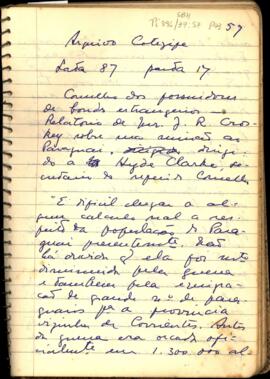 57
Arquivo Cotegipe
Lata 87 pasta 17
Conselho dos possuidores
de bonds estrangeiros
Relatorio de Mr. J. R. Cros-
key sobre sua missão ao
Paraguai, dirigi-
do a Hyde Clarke, se-
cretario do referido Conselho
"É dificil chegar a al-
gum calculo real a res-
peito da população do Para-
guai presentemente. Não
há duvida q ela foi mto
diminuida pela guerra
e tambem pela emigra-
ção de grande nº de para-
guaios pa a provincia
vizinha de Corrientes. Antes
da guerra era orçada ofi-
cialmente em 1.300.000 al-